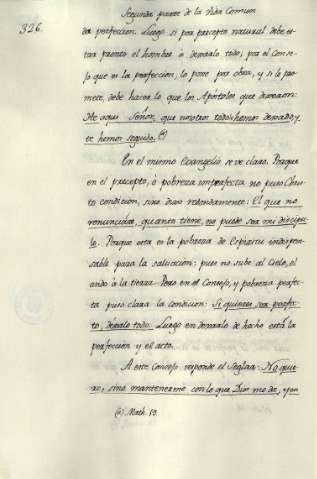 Segunda parte de la Vida Comun
326.
der perfeccion. Luego si por precepto natural debe es-
tar pronto el hombre à dexarlo todo, por el Conse-
jo que es la perfeccion, lo pone por obra, y si lo pro-
mete, debe hacer lo que los Apóstoles que dixeron:
He aqui Señor, que nosotros todo lo hemos dexado, y
te hemos seguido. (a)
En el mismo Evangelio se ve claro. Porque
en el precepto, ò pobreza imperfecta no puso Chris-
to condicion, sino dixo redondamente: El que no
renunciàre, quanto tiene, no puede ser mi Discipu-
lo. Porque esta es la pobreza de Espiritu indispen-
sable para la salvacion: pues no sube al Cielo, el
à la tierra. Pero en el Consejo, y pobreza perfec-
ta puso clara la condicion: Si quieres ser perfec-
to, dexalo todo. Luego en dexarlo de hecho està la
perfeccion y el acto.
A este Consejo responde el Seglar: No quie-
ro, sino mantenerme con lo que Dios me da, y en
(a) Math. 19.